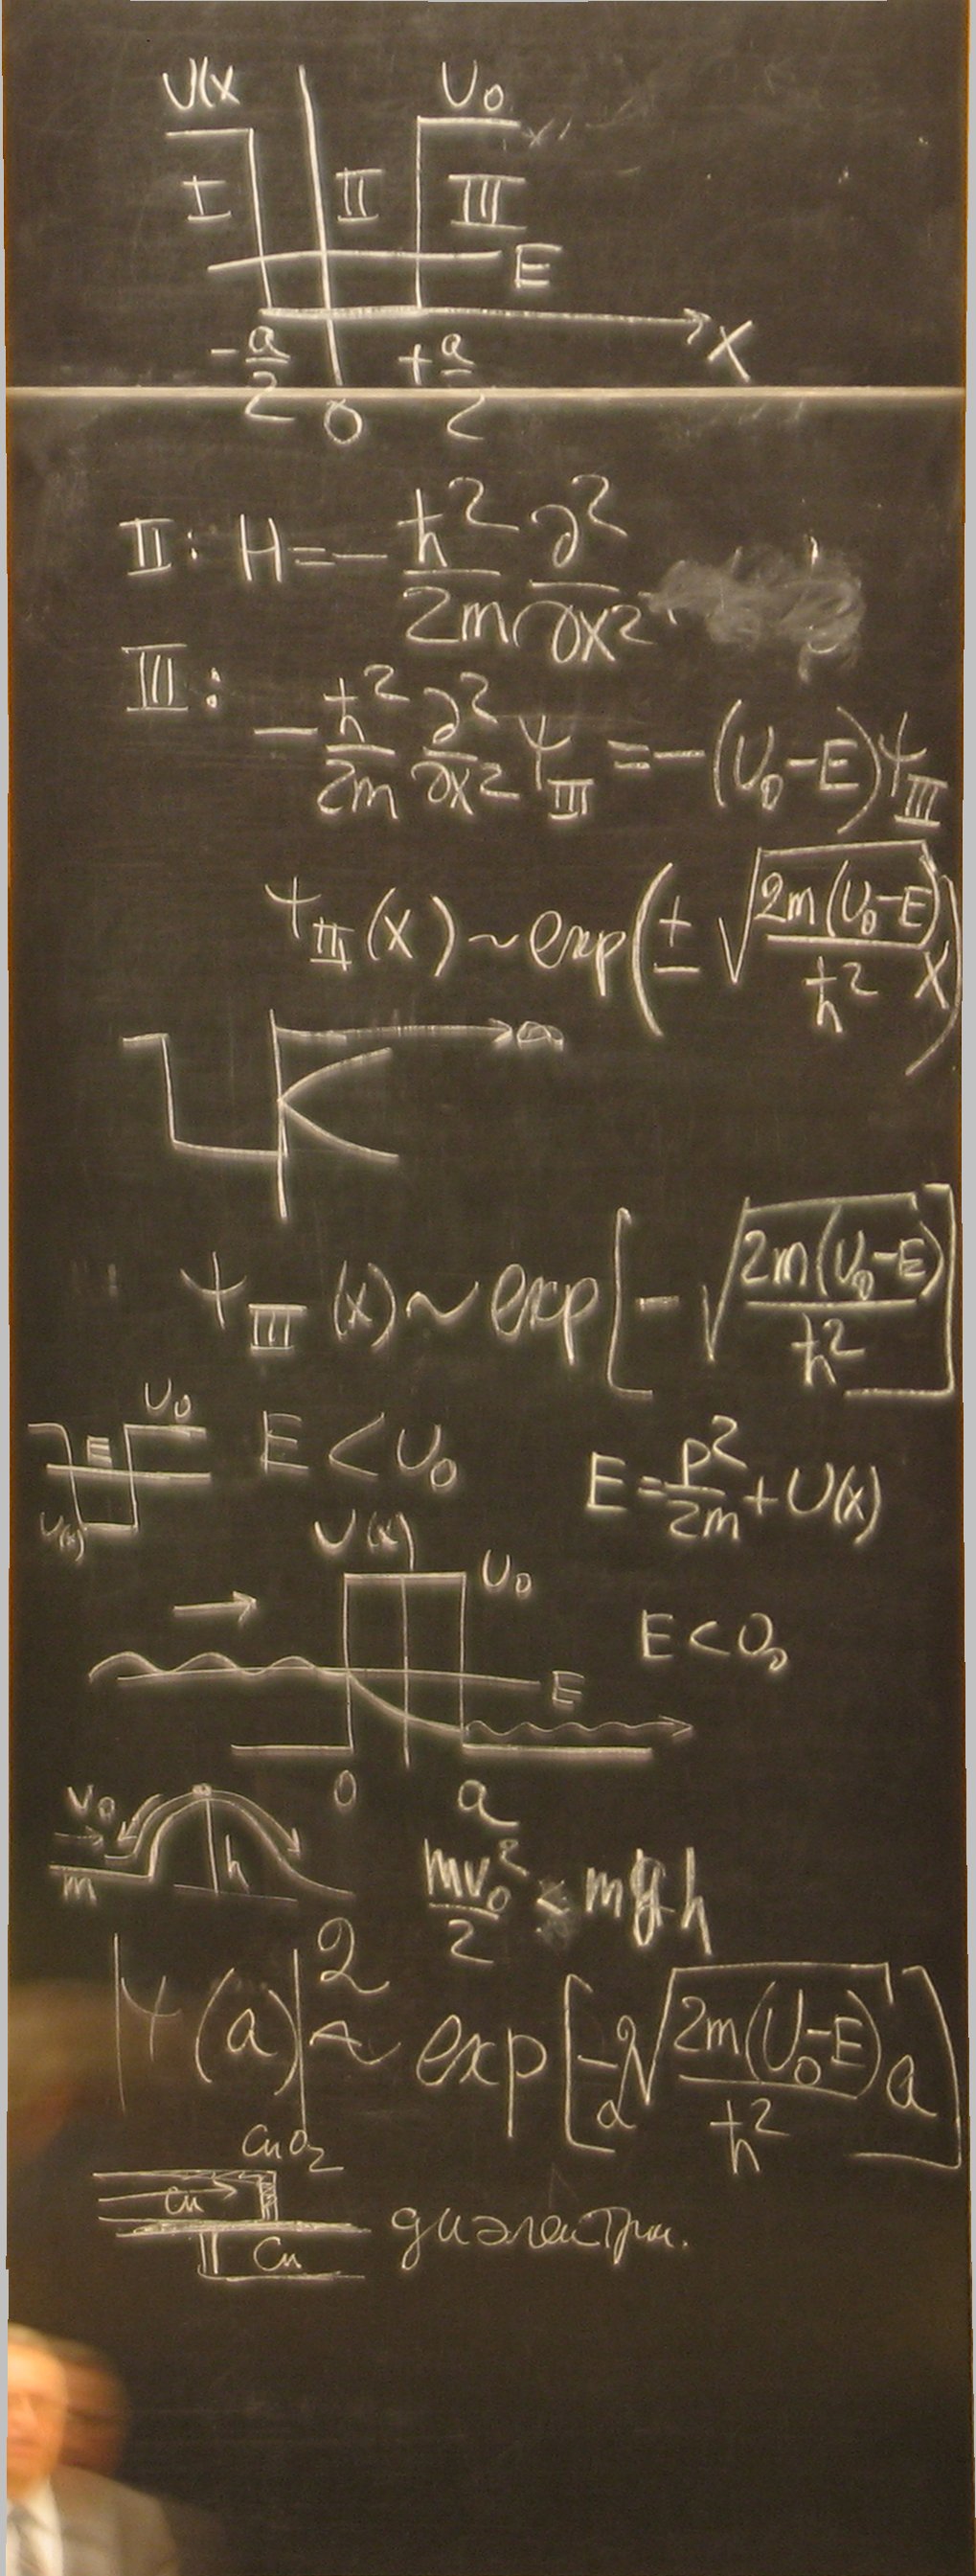 U(x U₀
I II III
E
-a/2 0 +a/2 X
II: H = - ħ²/2m ∂²/∂x²
III:
- ħ²/2m ∂²/∂x² ψ_III = -(U₀-E)ψ_III
ψ_III(x) ~ exp(± √(2m(U₀-E)/ħ²) x)
∞
ψ_III(x) ~ exp[- √(2m(U₀-E)/ħ²)]
U₀ E U(x) E < U₀ E = p²/2m + U(x)
U(x) U₀
E < U₀
E
0 a
v₀ m h mv₀²/2 < mgh
|ψ(a)|² ~ exp[-2√(2m(U₀-E)/ħ²) a]
CuO₂
Cu
Cu диэлектри.